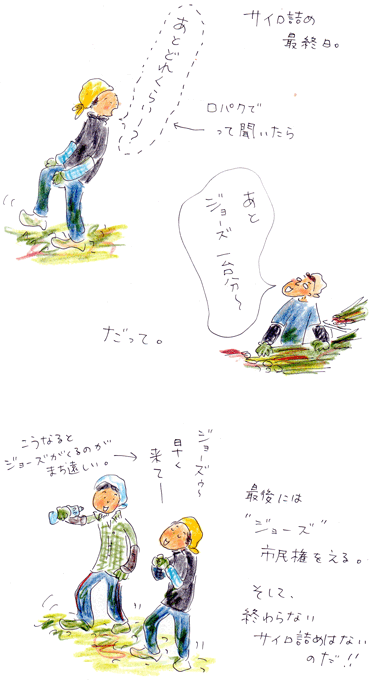 サイロ詰め
最終日。
あとどれくらい〜?
口パクで
って聞いたら
あと
ジョーズ
一台分〜
だって。
こうなると
ジョーズがくるのが
まち遠しい。
ジョーズゥ〜
早く
来て〜
最後には
"ジョーズ"
市民権をえる。
そして、
終わらない
サイロ詰めはない
のだ!!